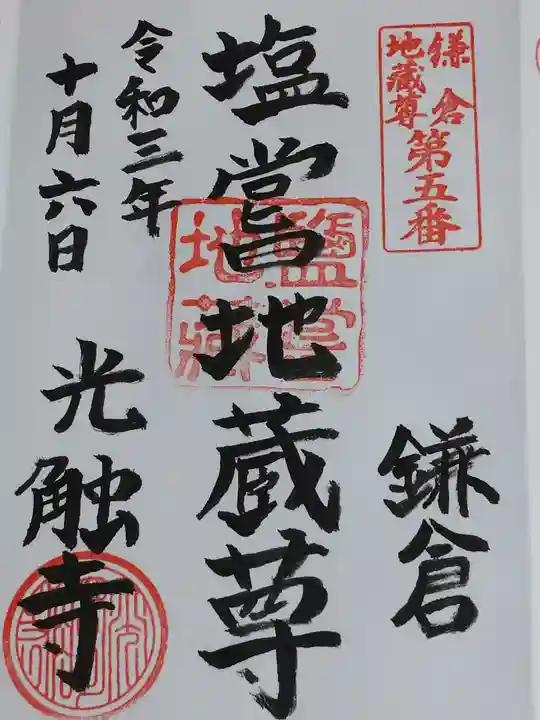 鎌倉
地蔵尊
第五番
鎌倉
塩嘗地蔵尊
鹽嘗
地蔵
令和三年
十月六日
光触寺